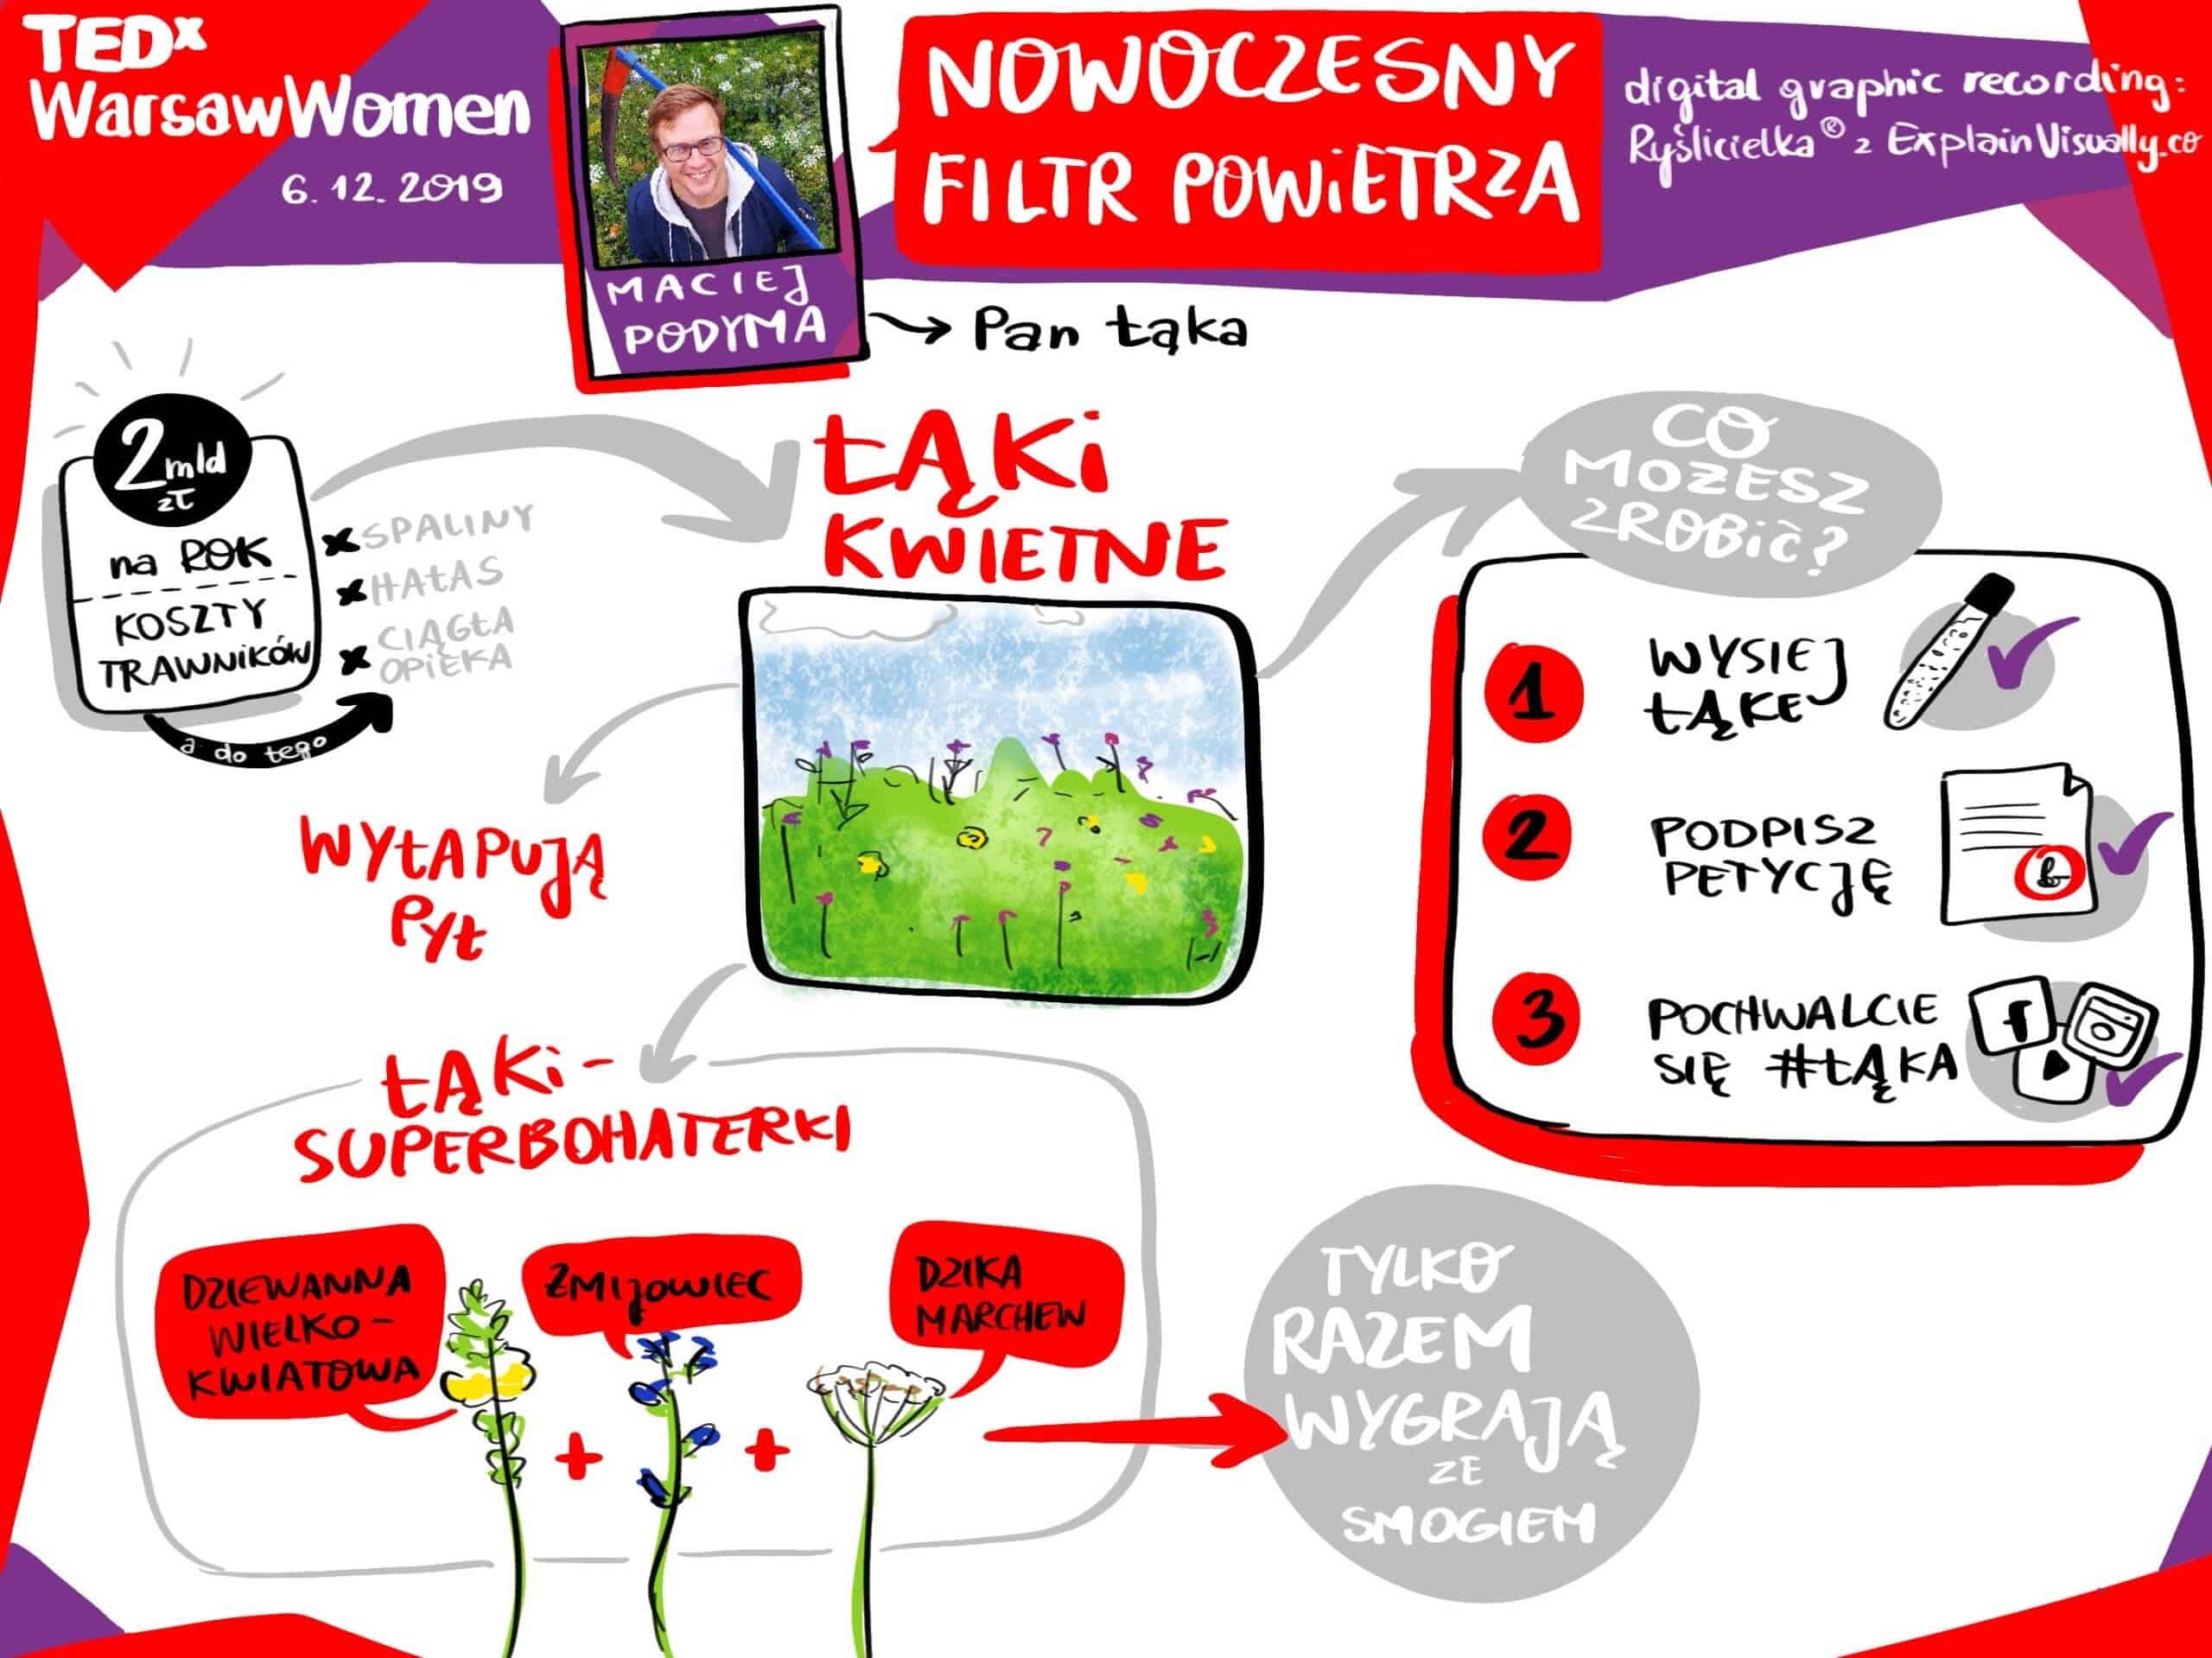 TEDx
WarsawWomen
6.12.2019
MACIEJ
PODYMA
NOWOCZESNY
FILTR POWIETRZA
digital graphic recording:
Ryślicielka® z ExplainVisually.co
Pan Łąka
2 mld
zł
na ROK
KOSZTY
TRAWNIKÓW
a do tego
x SPALINY
x HAŁAS
x CIĄGŁA
OPIEKA
ŁĄKI
KWIETNE
WYŁAPUJĄ
PYŁ
CO
MOŻESZ
ZROBIĆ?
1 WYSIEJ
ŁĄKĘ
2 PODPISZ
PETYCJĘ
3 POCHWALCIE
SIĘ #ŁĄKA
f
ŁĄKI-
SUPERBOHATERKI
DZIEWANNA
WIELKO-
KWIATOWA
+
ŻMIJOWIEC
+
DZIKA
MARCHEW
TYLKO
RAZEM
WYGRAJĄ
ZE
SMOGIEM